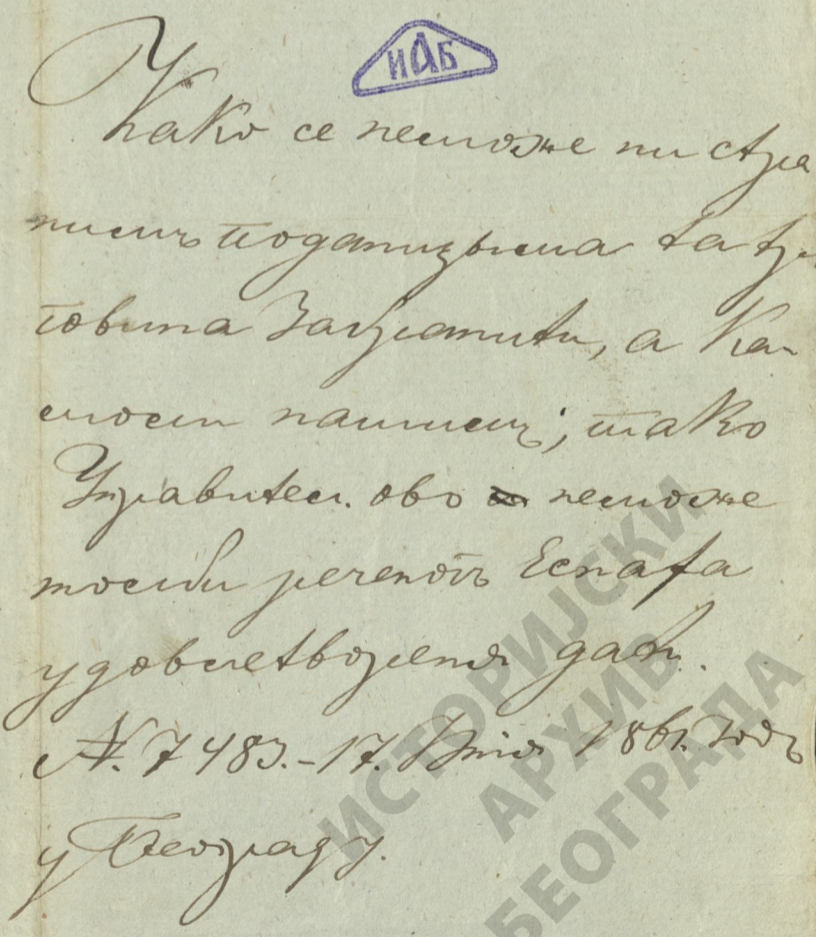 ИАБ
Како се неможе ни стра
нимъ поданицыма та тр
говина забранити, а кам
моли нашимъ; тако
Управител. ово неможе
молби реченогъ Еснафа
удовлетворенія дати.
N. 7483.-17. Юнія 1861. год
у Београду.
ИСТОРИЈСКИ
АРХИВ
БЕОГРАДА